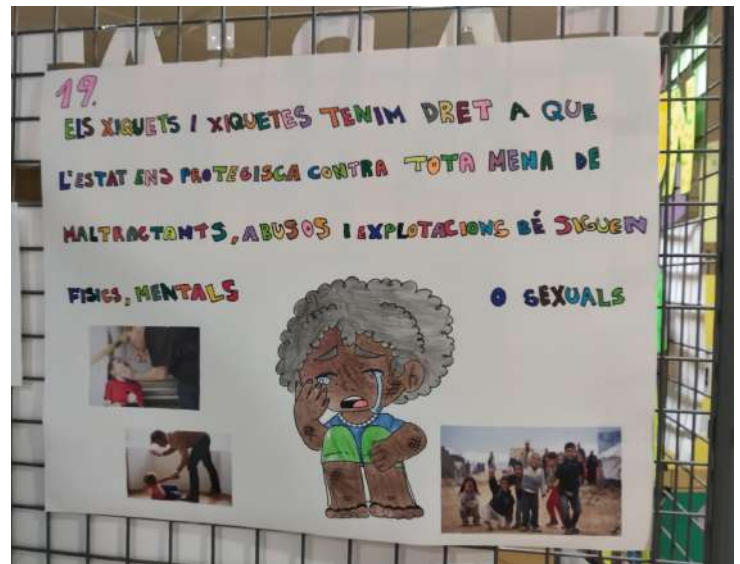 19.
ELS XIQUETS I XIQUETES TENIM DRET A QUE
L'ESTAT ENS PROTEGISCA CONTRA TOTA MENA DE
MALTRACTANTS, ABUSOS I EXPLOTACIONS BÉ SIGUEN
FISICS, MENTALS O SEXUALS